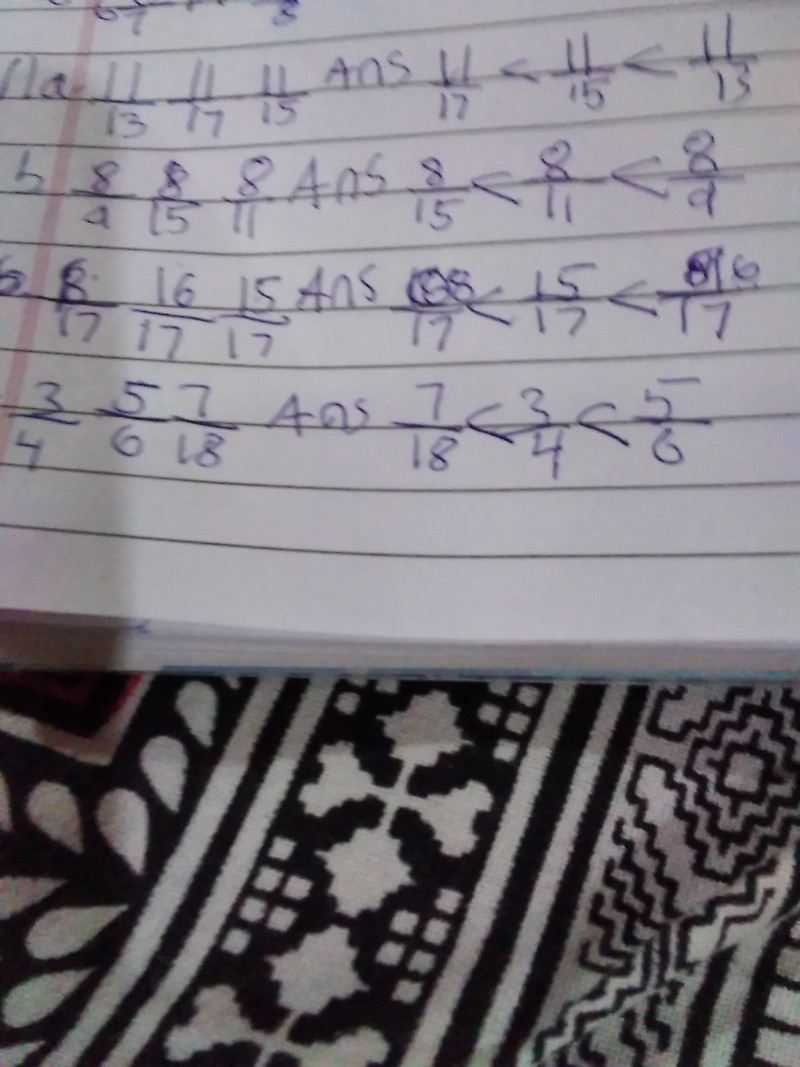 11a 11/13 11/17 11/15 Ans 11/17 < 11/15 < 11/13
b 8/9 8/15 8/11 Ans 8/15 < 8/11 < 8/9
8/17 16/17 15/17 Ans 8/17 < 15/17 < 16/17
3/4 5/6 7/18 Ans 7/18 < 3/4 < 5/6